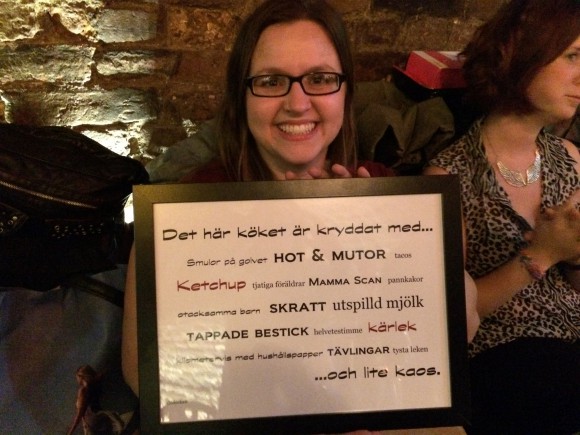 Det här köket är kryddat med...
Smulor på golvet HOT & MUTOR tacos
Ketchup tjatiga föräldrar Mamma Scan pannkakor
otacksamma barn SKRATT utspilld mjölk
TAPPADE BESTICK helvetestimme kärlek
kilometervis med hushållspapper TÄVLINGAR tysta leken
...och lite kaos.